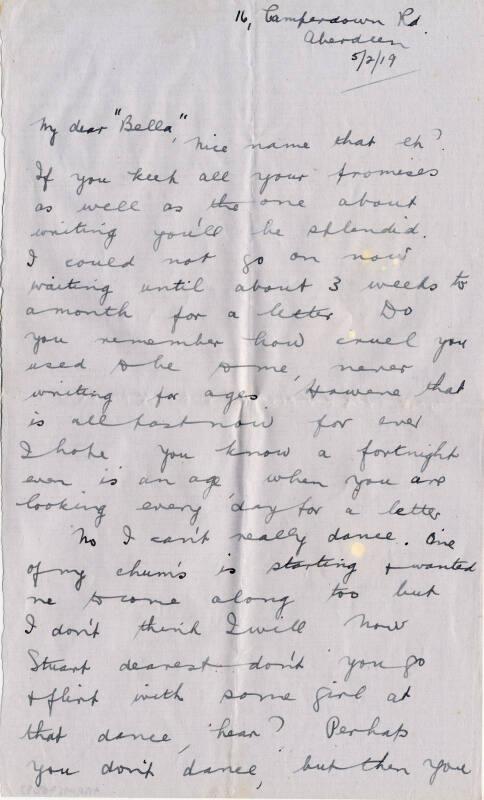 16, Camperdown Rd.
Aberdeen
5/2/19
My dear "Bella",
Nice name that eh?
If you keep all your promises
as well as the one about
writing you'll be splendid.
I could not go on now
waiting until about 3 weeks to
a month for a letter Do
you remember how cruel you
used to be to me, never
writing for ages, However that
is all past now for ever
I hope You know a fortnight
even is an age, when you are
looking every day for a letter
No I can't really dance. One
of my chum's is starting & wanted
me to come along too but
I don't think I will Now
Stuart dearest don't you go
& flirt with some girl at
that dance, hear? Perhaps
you don't dance, but then you